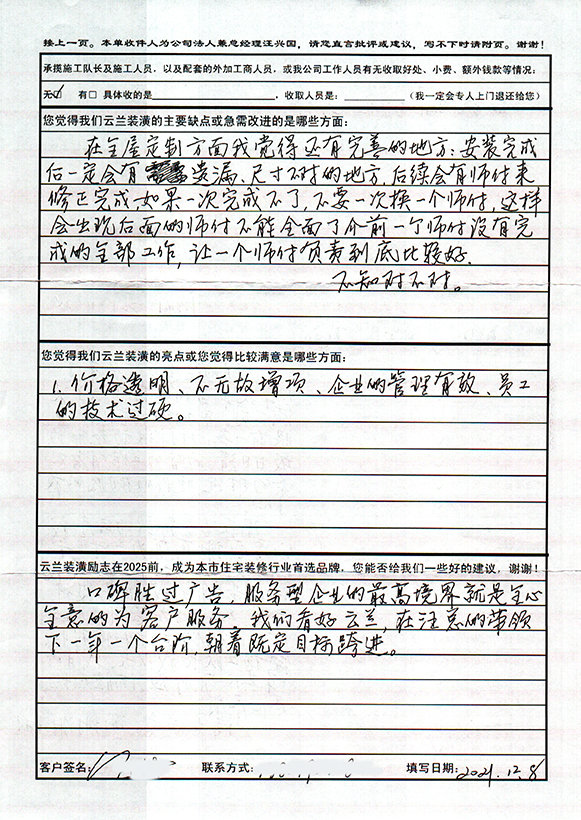 接上一页。本单收件人为公司法人兼总经理汪兴国，请您直言批评或建议，写不下时请附页。谢谢！
承揽施工队长及施工人员，以及配套的外加工商人员，或我公司工作人员有无收取好处、小费、额外钱款等情况：
无☑ 有□ 具体收的是＿＿＿＿，收取人员是：＿＿＿＿（我一定会专人上门退还给您）
您觉得我们云兰装潢的主要缺点或急需改进的是哪些方面：
在全屋定制方面我觉得还有完善的地方：安装完成
后一定会有遗漏、尺寸不对的地方，后续会有师付来
修正完成。如果一次完成不了，不要一次换一个师付，这样
会出现后面的师付不能全面了介前一个师付没有完
成的全部工作，让一个师付负责到底比较好。
不知对不对。
您觉得我们云兰装潢的亮点或您觉得比较满意是哪些方面：
1. 价格透明、不无故增项、企业的管理有效、员工
的技术过硬。
云兰装潢励志在2025前，成为本市住宅装修行业首选品牌，您能否给我们一些好的建议，谢谢！
口碑胜过广告，服务型企业的最高境界就是全心
全意的为客户服务。我们看好云兰，在汪总的带领
下一年一个台阶，朝着既定目标跨进。
客户签名： 联系方式： 填写日期：2021.12.8